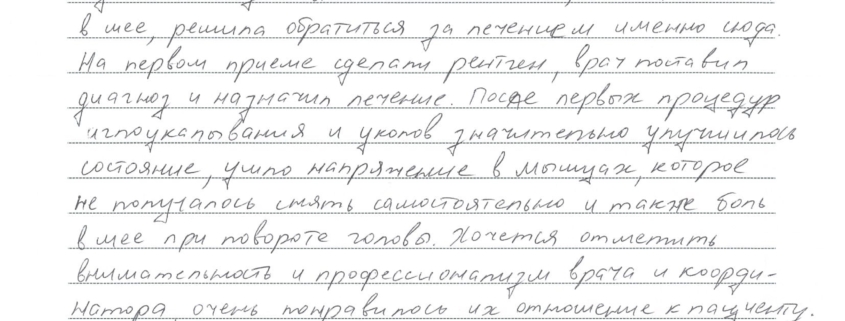 в шее, решила обратиться за лечением именно сюда.
На первом приеме сделали рентген, врач поставил
диагноз и назначил лечение. После первых процедур
иглоукалывания и уколов значительно улучшилось
состояние, ушло напряжение в мышцах, которое
не получалось снять самостоятельно и также боль
в шее при повороте головы. Хочется отметить
внимательность и профессионализм врача и коорди-
натора, очень понравилось их отношение к пациенту.